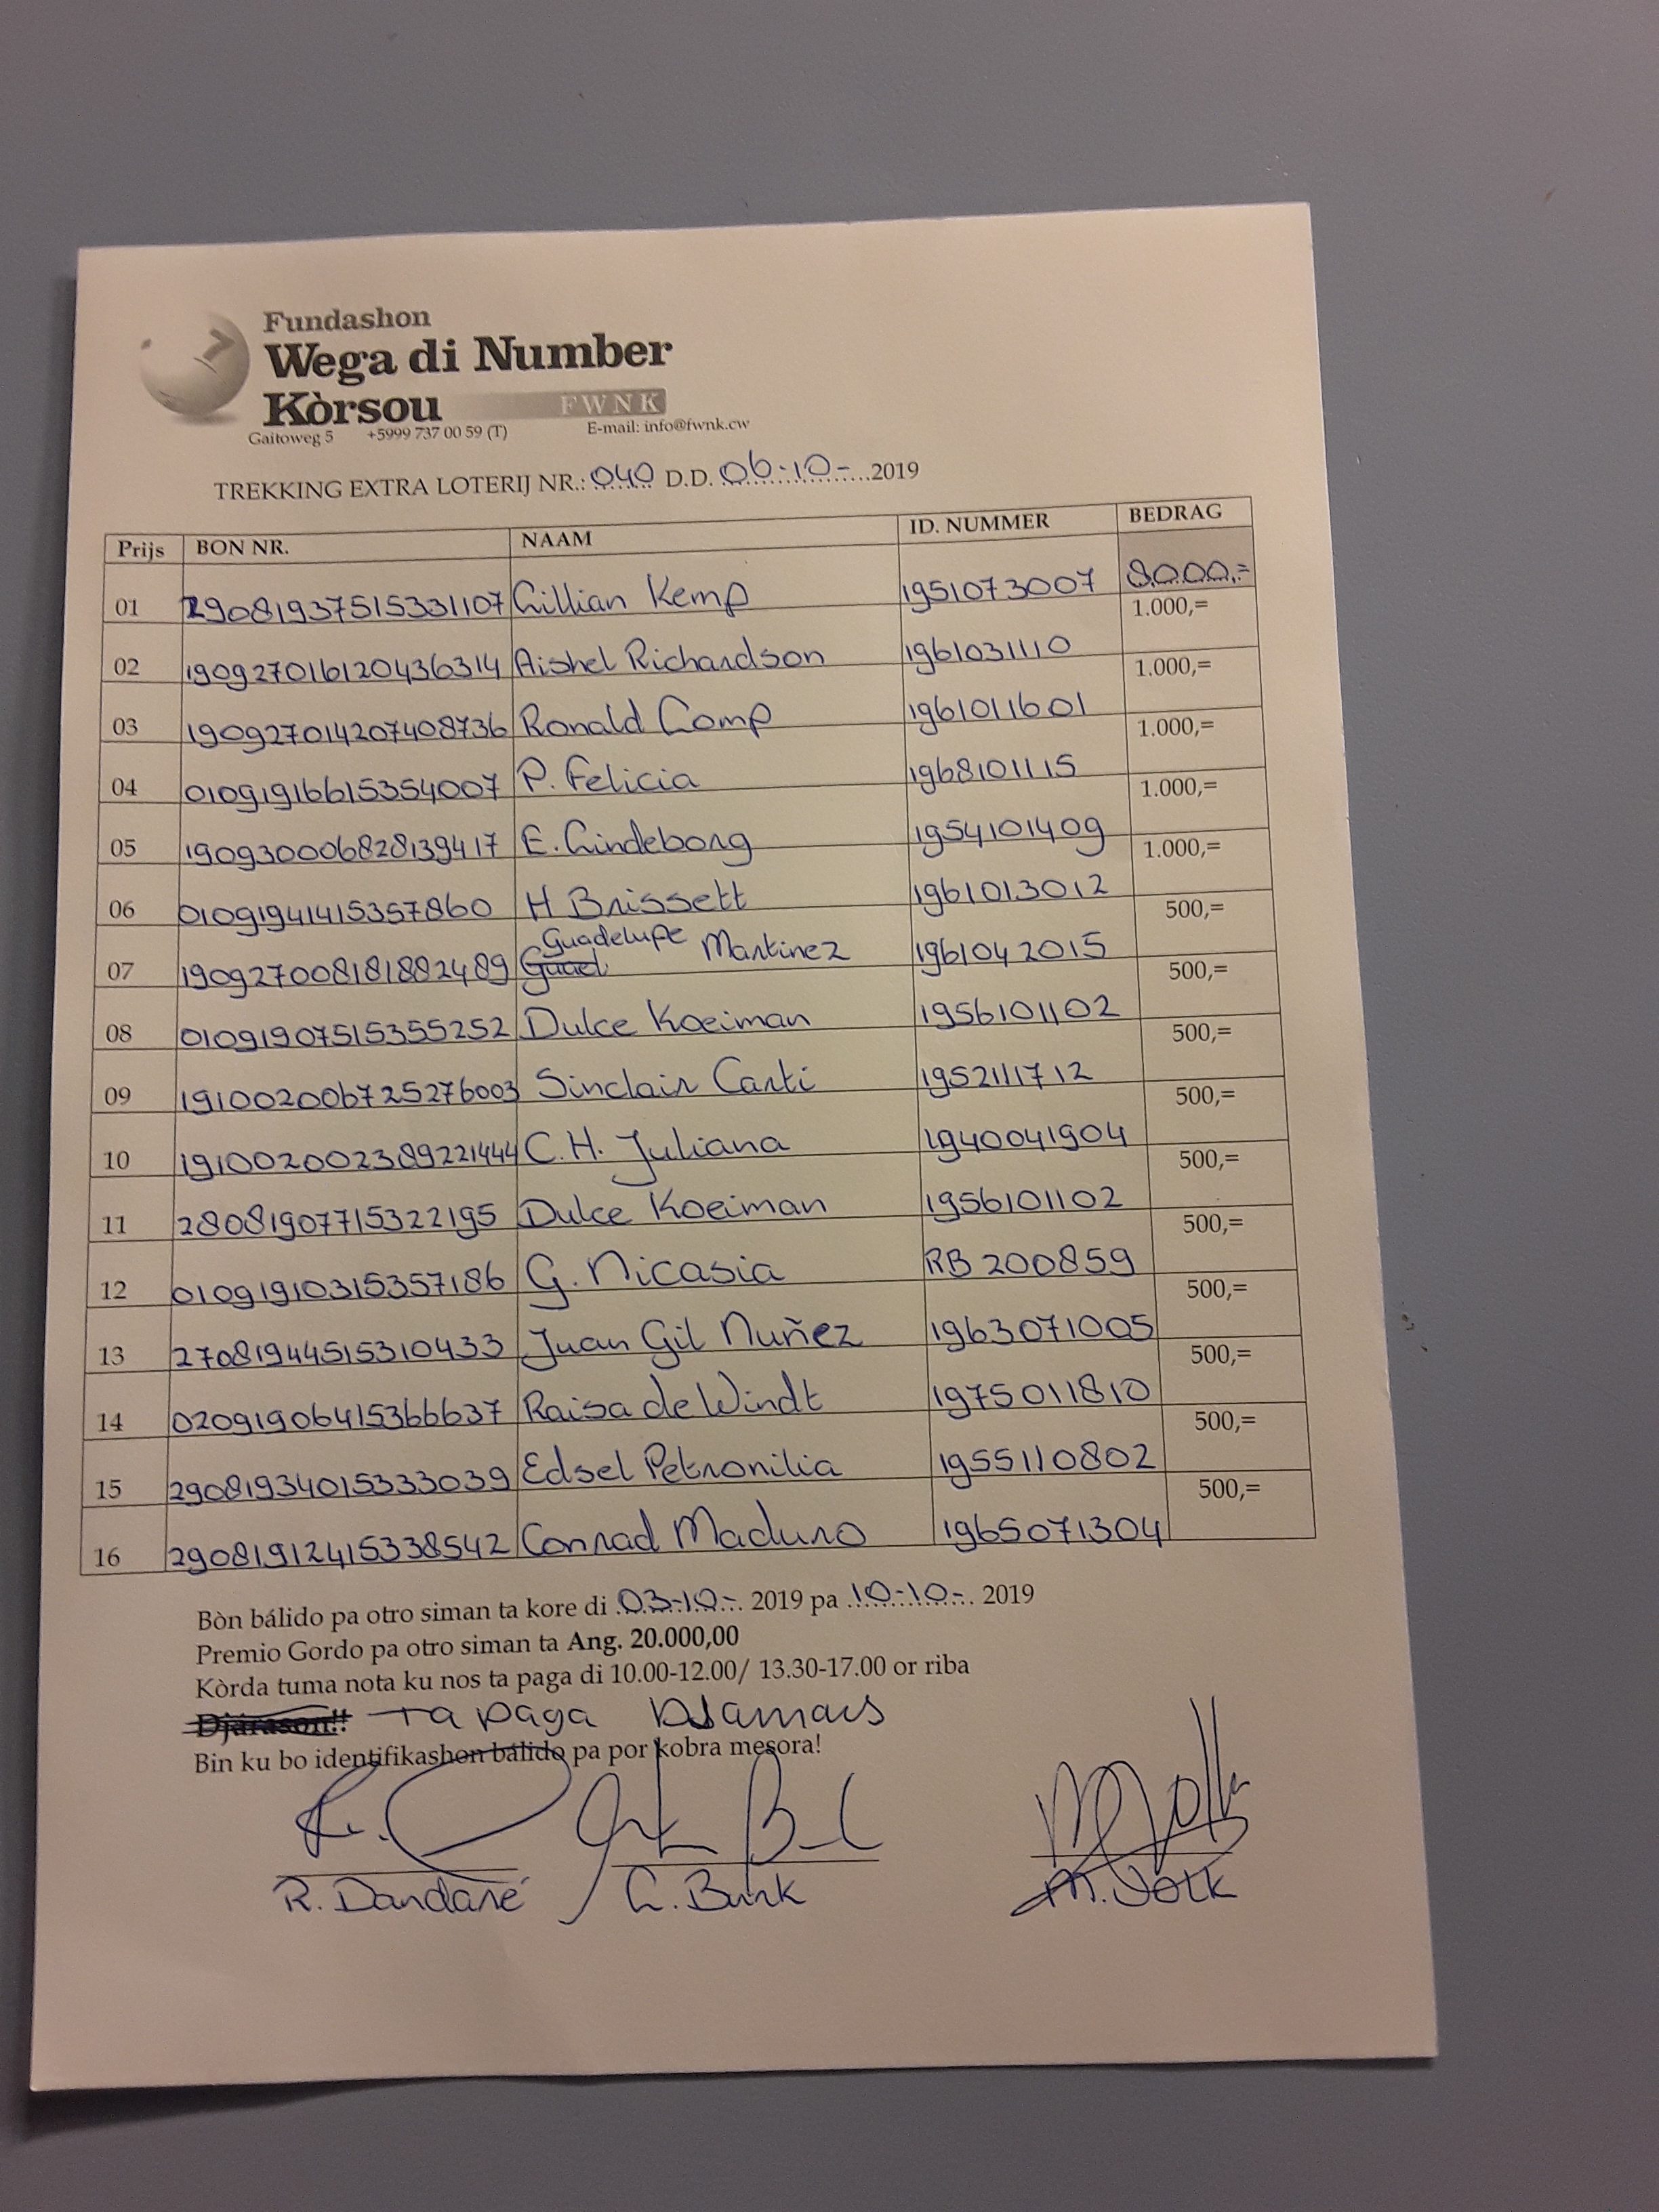 Fundashon
Wega di Number
Kòrsou
FWNK
Gaitoweg 5 +5999 737 00 59 (T) E-mail: info@fwnk.cw
TREKKING EXTRA LOTERIJ NR.: 040 D.D. 06-10-2019
Prijs BON NR. NAAM ID. NUMMER BEDRAG
01 29081937515331107 Gillian Kemp 1951073007 8000,=
02 190927016120436314 Aishel Richardson 1961031110 1.000,=
03 190927014207408736 Ronald Comp 1961011601 1.000,=
04 01091916615354007 P. Felicia 1968101115 1.000,=
05 190930006828139417 E. Lindeborg 1954101409 1.000,=
06 01091941415357860 H Brissett 1961013012 1.000,=
07 190927008181882489 Guadelupe Martinez 1961042015 500,=
08 01091907515355252 Dulce Koeiman 1956101102 500,=
09 191002006725276003 Sinclair Carti 1952111712 500,=
10 191002002389221444 C.H. Juliana 1940041904 500,=
11 28081907715322195 Dulce Koeiman 1956101102 500,=
12 01091910315357186 G. Nicasia RB 200859 500,=
13 27081944515310433 Juan Gil Nuñez 1963071005 500,=
14 02091906415366637 Raisa de Windt 1975011810 500,=
15 29081934015333039 Edsel Petronilia 1955110802 500,=
16 29081912415338542 Conrad Maduro 1965071304 500,=
Bòn bálido pa otro siman ta kore di 03-10-2019 pa 10-10-2019
Premio Gordo pa otro siman ta Ang. 20.000,00
Kòrda tuma nota ku nos ta paga di 10.00-12.00/ 13.30-17.00 or riba
Djárason!! Ta paga Djamars
Bin ku bo identifikashon bálido pa por kobra mesora!
R. Dandaré